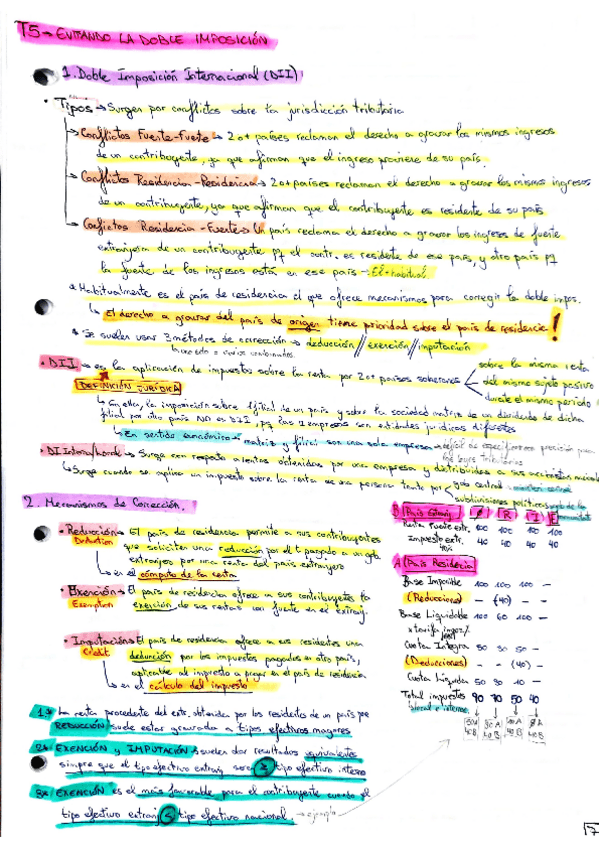 T5 → EVITANDO LA DOBLE IMPOSICIÓN
1. Doble Imposición Internacional (DII)
• Tipos → Surgen por conflictos sobre la jurisdicción tributaria
↳ Conflictos Fuente-Fuente → 2 o + países reclaman el derecho a gravar los mismos ingresos
de un contribuyente, ya que afirman que el ingreso proviene de su país.
↳ Conflictos Residencia-Residencia → 2 o + países reclaman el derecho a gravar los mismos ingresos
de un contribuyente, ya que afirman que el contribuyente es residente de su país
↳ Conflictos Residencia-Fuente → Un país reclama el derecho a gravar los ingresos de fuente
extranjera de un contribuyente pq el contr. es residente de ese país, y otro país pq
la fuente de los ingresos está en ese país → El + habitual
* Habitualmente es el país de residencia el que ofrece mecanismos para corregir la doble impos.
↳ El derecho a gravar del país de origen tiene prioridad sobre el país de residencia!
* Se suelen usar 3 métodos de corrección → deducción // exención // imputación
• DII → es la aplicación de impuestos sobre la renta por 2 o + países soberanos
sobre la misma renta
del mismo sujeto pasivo
durante el mismo periodo
DEFINICIÓN JURÍDICA
↳ En ella, la imposición sobre filial de un país y sobre la sociedad matriz de un dividendo de dicha
filial por otro país NO es DII, pq las 2 empresas son entidades jurídicas difuentes
↳ En sentido económico → matriz y filial son una sola empresa → difícil de especificar con precisión para
las leyes tributarias
• DI Interna/
↳ Surge con respecto a rentas obtenidas por una empresa y distribuidas a sus accionistas
↳ Surge cuando se aplica un impuesto sobre la renta de una persona tanto por
gob. central
subdivisiones políticas
2. Mecanismos de Corrección.
• Reducción → El país de residencia permite a sus contribuyentes
Deduction
que soliciten una reducción por el t pagado a un gob
extranjero por una renta del país extranjero
↳ en el cómputo de la renta
• Exención → El país de residencia ofrece a sus contribuyentes la
Exemption
exención de sus rentas con fuente en el extranj.
• Imputación → El país de residencia ofrece a sus residentes una
Credit
deducción por los impuestos pagados en otro país,
aplicable al impuesto a pagar en el país de residencia
↳ en el cálculo del impuesto
B País Extranj. Ø R I E
Renta Fuente extr. 100 100 100 100
Impuesto extr. 40 40 40 40
40%
A País Residencia
Base Imponible 100 100 100 –
(Reducciones) – (40) – –
Base Liquidable 100 60 100 –
x tarifa impos/.
Cuota Íntegra 50 30 50 –
(Deducciones) – – (40) –
Cuota Líquida 50 30 10 –
Total impuestos 90 70 50 40
50A 30A 10A Ø A
40B 40B 40B 40B
1ª* La renta procedente del extr. obtenida por los residentes de un país por
REDUCCIÓN suele estar gravada a tipos efectivos mayores
2ª* EXENCIÓN y IMPUTACIÓN → suelen dar resultados equivalentes
siempre que el tipo efectivo extranj sea ≥ tipo efectivo interno
3ª* EXENCIÓN es el más favorable para el contribuyente cuando el
tipo efectivo extranj < tipo efectivo nacional. → ejemplo
7